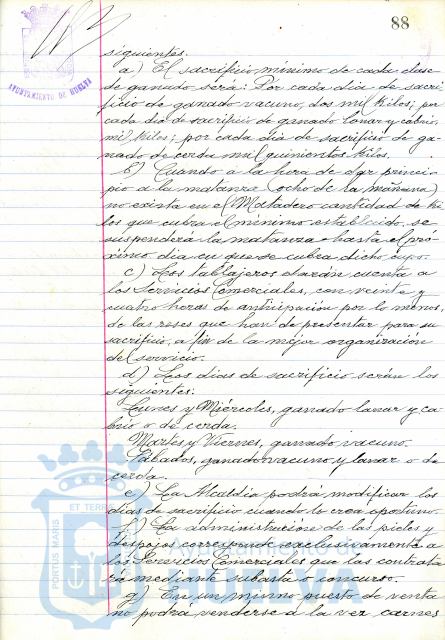 88
AYUNTAMIENTO DE HUELVA
siguientes.
a) El sacrificio mínimo de cada clase
de ganado será: Por cada día de sacri
ficio de ganado vacuno, dos mil kilos; por
cada día de sacrificio de ganado lanar y cabrio,
mil kilos; por cada día de sacrificio de ga
nado de cerda mil quinientos kilos.
b) Cuando a la hora de dar princi
pio a la matanza (ocho de la mañana)
no exista en el Matadero cantidad de ki
los que cubra el mínimo establecido, se
suspenderá la matanza hasta el pró
ximo día en que se cubra dicho cupo.
c) Los tablajeros darán cuenta a
los Servicios Comerciales, con veinte y
cuatro horas de anticipación por lo menos,
de las reses que han de presentar para su
sacrificio, a fin de la mejor organización
del servicio.
d) Los días de sacrificio serán los
siguientes:
Lunes y Miércoles, ganado lanar y ca
brio o de cerda.
Martes y Viernes, ganado vacuno.
Sábados, ganado vacuno y lanar o de
cerda.
e) La Alcaldía podrá modificar los
días de sacrificio cuando lo crea oportuno.
f) La administración de las pieles y
despojos corresponde exclusivamente a
los Servicios Comerciales que las contrata
rá mediante subasta o concurso.
g) En un mismo puesto de venta
no podrá venderse a la vez carnes
PORTUS MARIS ET TERR
Ayuntamiento de
HUELVA